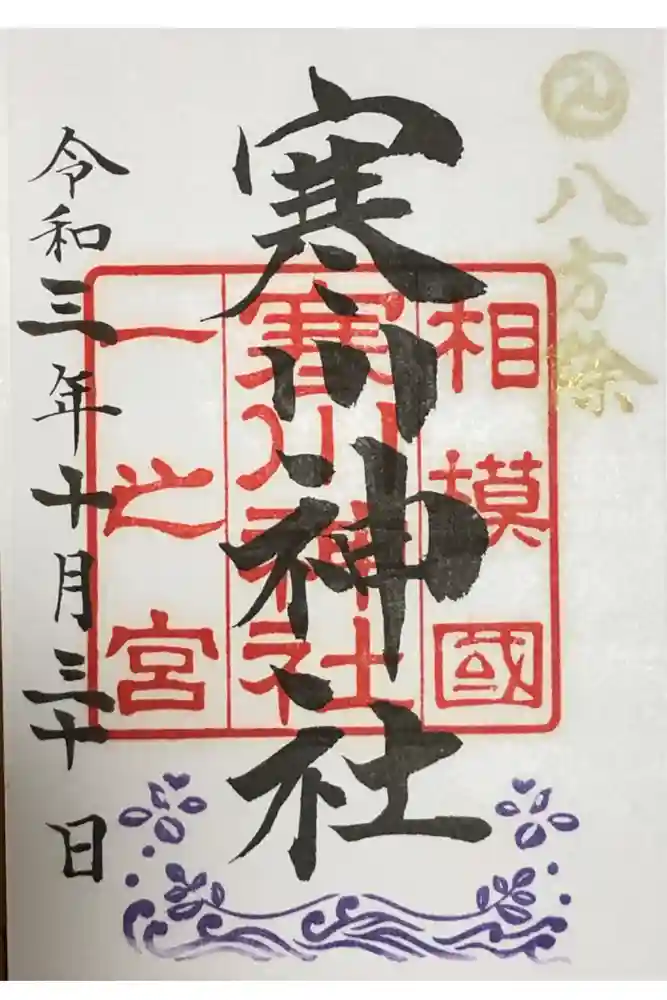 八方除
寒川神社
相模國
寒川神社
一之宮
令和三年十月三十日